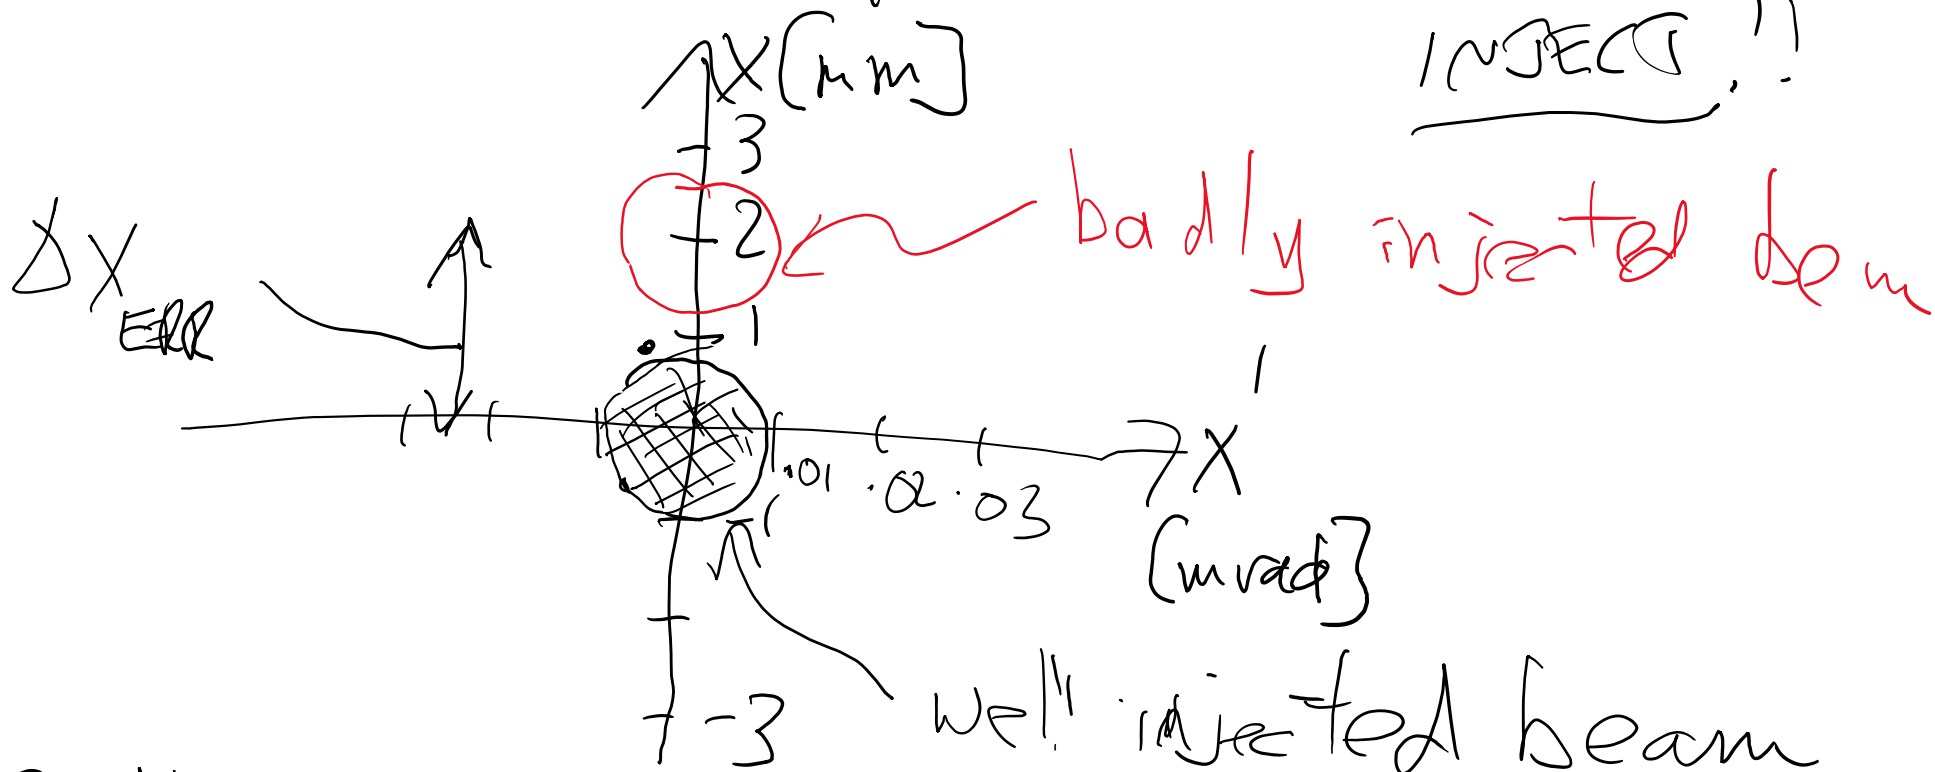 INJECT!!
X [mm]
3
badly injected bem
2
ΔX ERR
1
X'
.01 .02 .03
-1
[mrad]
-3
well injected beam